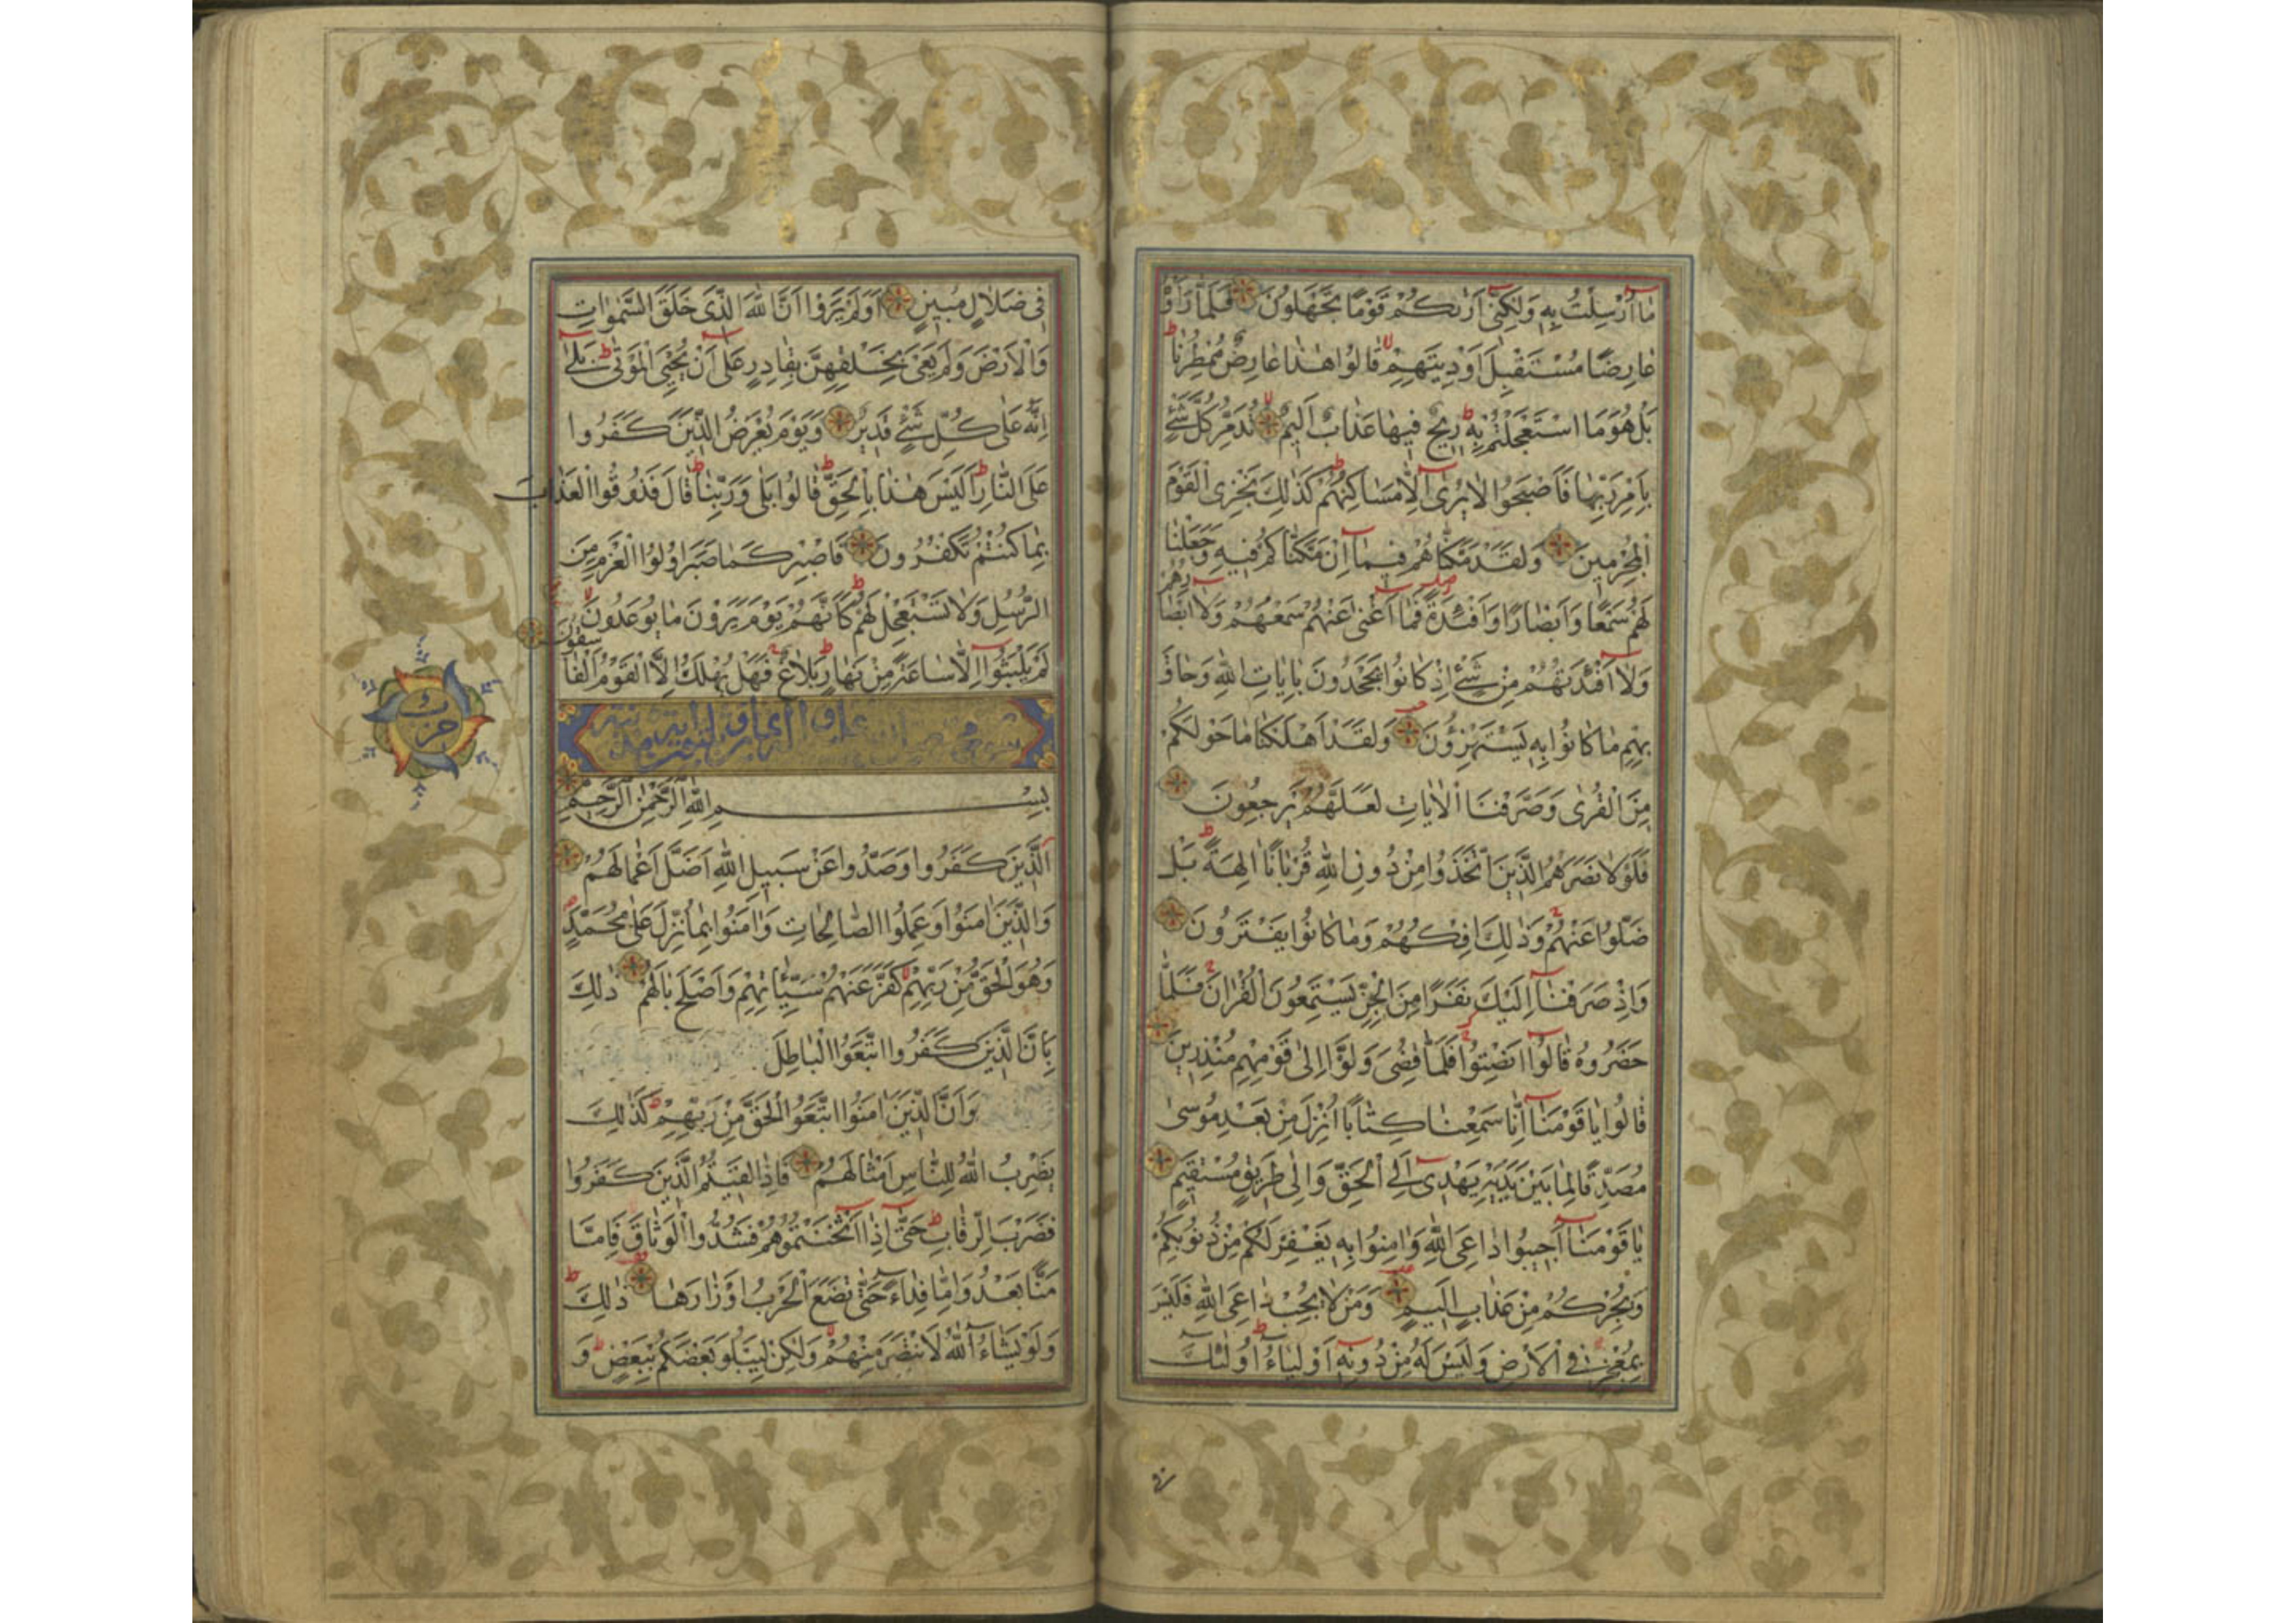 مٰا اُرْسِلْتُ بِهِ وَلٰكِنّى اَرٰىكُمْ قَوْمًا تَجْهَلُونَ فَلَمّٰا رَاَوْهُ
عٰارِضًا مُسْتَقْبِلَ اَوْدِيَتِهِمْ قٰالُوا هٰذٰا عٰارِضٌ مُمْطِرُنٰا
بَلْ هُوَ مَا اسْتَعْجَلْتُمْ بِهِ رِيحٌ فِيهٰا عَذٰابٌ اَلِيمٌ تُدَمِّرُ كُلَّ شَىْءٍ
بِاَمْرِ رَبِّهٰا فَاَصْبَحُوا لٰا يُرٰى اِلّٰا مَسٰاكِنُهُمْ كَذٰلِكَ نَجْزِى الْقَوْمَ
الْمُجْرِمِينَ وَلَقَدْ مَكَّنّٰاهُمْ فِيمٰا اِنْ مَكَّنّٰاكُمْ فِيهِ وَجَعَلْنٰا
لَهُمْ سَمْعًا وَاَبْصٰارًا وَاَفْئِدَةً فَمٰا اَغْنٰى عَنْهُمْ سَمْعُهُمْ وَلٰا اَبْصٰارُهُمْ
وَلٰا اَفْئِدَتُهُمْ مِنْ شَىْءٍ اِذْ كٰانُوا يَجْحَدُونَ بِاٰيٰاتِ اللّٰهِ وَحٰاقَ
بِهِمْ مٰا كٰانُوا بِهِ يَسْتَهْزِؤُنَ وَلَقَدْ اَهْلَكْنٰا مٰا حَوْلَكُمْ
مِنَ الْقُرٰى وَصَرَّفْنَا الْاٰيٰاتِ لَعَلَّهُمْ يَرْجِعُونَ
فَلَوْلٰا نَصَرَهُمُ الَّذِينَ اتَّخَذُوا مِنْ دُونِ اللّٰهِ قُرْبٰانًا اٰلِهَةً بَلْ
ضَلُّوا عَنْهُمْ وَذٰلِكَ اِفْكُهُمْ وَمٰا كٰانُوا يَفْتَرُونَ
وَاِذْ صَرَفْنٰا اِلَيْكَ نَفَرًا مِنَ الْجِنِّ يَسْتَمِعُونَ الْقُرْاٰنَ فَلَمّٰا
حَضَرُوهُ قٰالُوا اَنْصِتُوا فَلَمّٰا قُضِىَ وَلَّوْا اِلٰى قَوْمِهِمْ مُنْذِرِينَ
قٰالُوا يٰا قَوْمَنٰا اِنّٰا سَمِعْنٰا كِتٰابًا اُنْزِلَ مِنْ بَعْدِ مُوسٰى
مُصَدِّقًا لِمٰا بَيْنَ يَدَيْهِ يَهْدِى اِلَى الْحَقِّ وَاِلٰى طَرِيقٍ مُسْتَقِيمٍ
يٰا قَوْمَنٰا اَجِيبُوا دٰاعِىَ اللّٰهِ وَاٰمِنُوا بِهِ يَغْفِرْ لَكُمْ مِنْ ذُنُوبِكُمْ
وَيُجِرْكُمْ مِنْ عَذٰابٍ اَلِيمٍ وَمَنْ لٰا يُجِبْ دٰاعِىَ اللّٰهِ فَلَيْسَ
بِمُعْجِزٍ فِى الْاَرْضِ وَلَيْسَ لَهُ مِنْ دُونِهِ اَوْلِيٰاءُ اُولٰئِكَ
فِى ضَلٰالٍ مُبِينٍ اَوَلَمْ يَرَوْا اَنَّ اللّٰهَ الَّذِى خَلَقَ السَّمٰوٰاتِ
وَالْاَرْضَ وَلَمْ يَعْىَ بِخَلْقِهِنَّ بِقٰادِرٍ عَلٰى اَنْ يُحْيِىَ الْمَوْتٰى بَلٰى
اِنَّهُ عَلٰى كُلِّ شَىْءٍ قَدِيرٌ وَيَوْمَ يُعْرَضُ الَّذِينَ كَفَرُوا
عَلَى النّٰارِ اَلَيْسَ هٰذٰا بِالْحَقِّ قٰالُوا بَلٰى وَرَبِّنٰا قٰالَ فَذُوقُوا الْعَذٰابَ
بِمٰا كُنْتُمْ تَكْفُرُونَ فَاصْبِرْ كَمٰا صَبَرَ اُولُوا الْعَزْمِ مِنَ
الرُّسُلِ وَلٰا تَسْتَعْجِلْ لَهُمْ كَاَنَّهُمْ يَوْمَ يَرَوْنَ مٰا يُوعَدُونَ
لَمْ يَلْبَثُوا اِلّٰا سٰاعَةً مِنْ نَهٰارٍ بَلٰاغٌ فَهَلْ يُهْلَكُ اِلَّا الْقَوْمُ الْفٰاسِقُونَ
حزب
بِسْمِ اللّٰهِ الرَّحْمٰنِ الرَّحِيمِ
اَلَّذِينَ كَفَرُوا وَصَدُّوا عَنْ سَبِيلِ اللّٰهِ اَضَلَّ اَعْمٰالَهُمْ
وَالَّذِينَ اٰمَنُوا وَعَمِلُوا الصّٰالِحٰاتِ وَاٰمَنُوا بِمٰا نُزِّلَ عَلٰى مُحَمَّدٍ
وَهُوَ الْحَقُّ مِنْ رَبِّهِمْ كَفَّرَ عَنْهُمْ سَيِّئٰاتِهِمْ وَاَصْلَحَ بٰالَهُمْ ذٰلِكَ
بِاَنَّ الَّذِينَ كَفَرُوا اتَّبَعُوا الْبٰاطِلَ
وَاَنَّ الَّذِينَ اٰمَنُوا اتَّبَعُوا الْحَقَّ مِنْ رَبِّهِمْ كَذٰلِكَ
يَضْرِبُ اللّٰهُ لِلنّٰاسِ اَمْثٰالَهُمْ فَاِذٰا لَقِيتُمُ الَّذِينَ كَفَرُوا
فَضَرْبَ الرِّقٰابِ حَتّٰى اِذٰا اَثْخَنْتُمُوهُمْ فَشُدُّوا الْوَثٰاقَ فَاِمّٰا
مَنًّا بَعْدُ وَاِمّٰا فِدٰاءً حَتّٰى تَضَعَ الْحَرْبُ اَوْزٰارَهٰا ذٰلِكَ
وَلَوْ يَشٰاءُ اللّٰهُ لَانْتَصَرَ مِنْهُمْ وَلٰكِنْ لِيَبْلُوَ بَعْضَكُمْ بِبَعْضٍ وَ